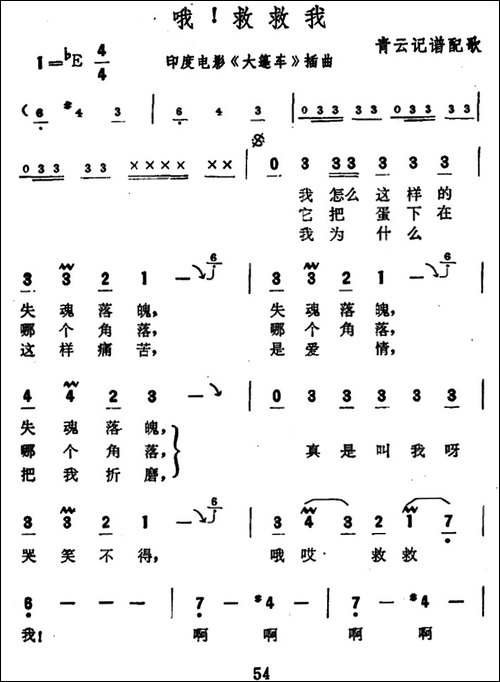 哦！救救我
1=♭E 4/4
印度电影《大篷车》插曲
青云记谱配歌
( 6 #4 3 | 6 4 3 | 0 3 3 3 3 3 3 | 0 3 3 3 3 3 3 |
0 3 3 3 3 3 3 | × × × × × × × | 0 3 3 3 3 3 3
我怎么这样的
它把蛋下在
我为什么
3 3 2 1 — 6 | 3 3 2 1 — 6 |
失魂落魄, 失魂落魄,
哪个角落, 哪个角落,
这样痛苦, 是爱情,
4 4 2 3 — | 0 3 3 3 3 3 3 |
失魂落魄,
哪个角落, 真是叫我呀
把我折磨,
3 3 2 1 — 6 | 3 4 3 2 1 7 |
哭笑不得, 哦哎 救救
6 — — — | 7 — #4 — | 7 — #4 — |
我! 啊 啊 啊 啊
54